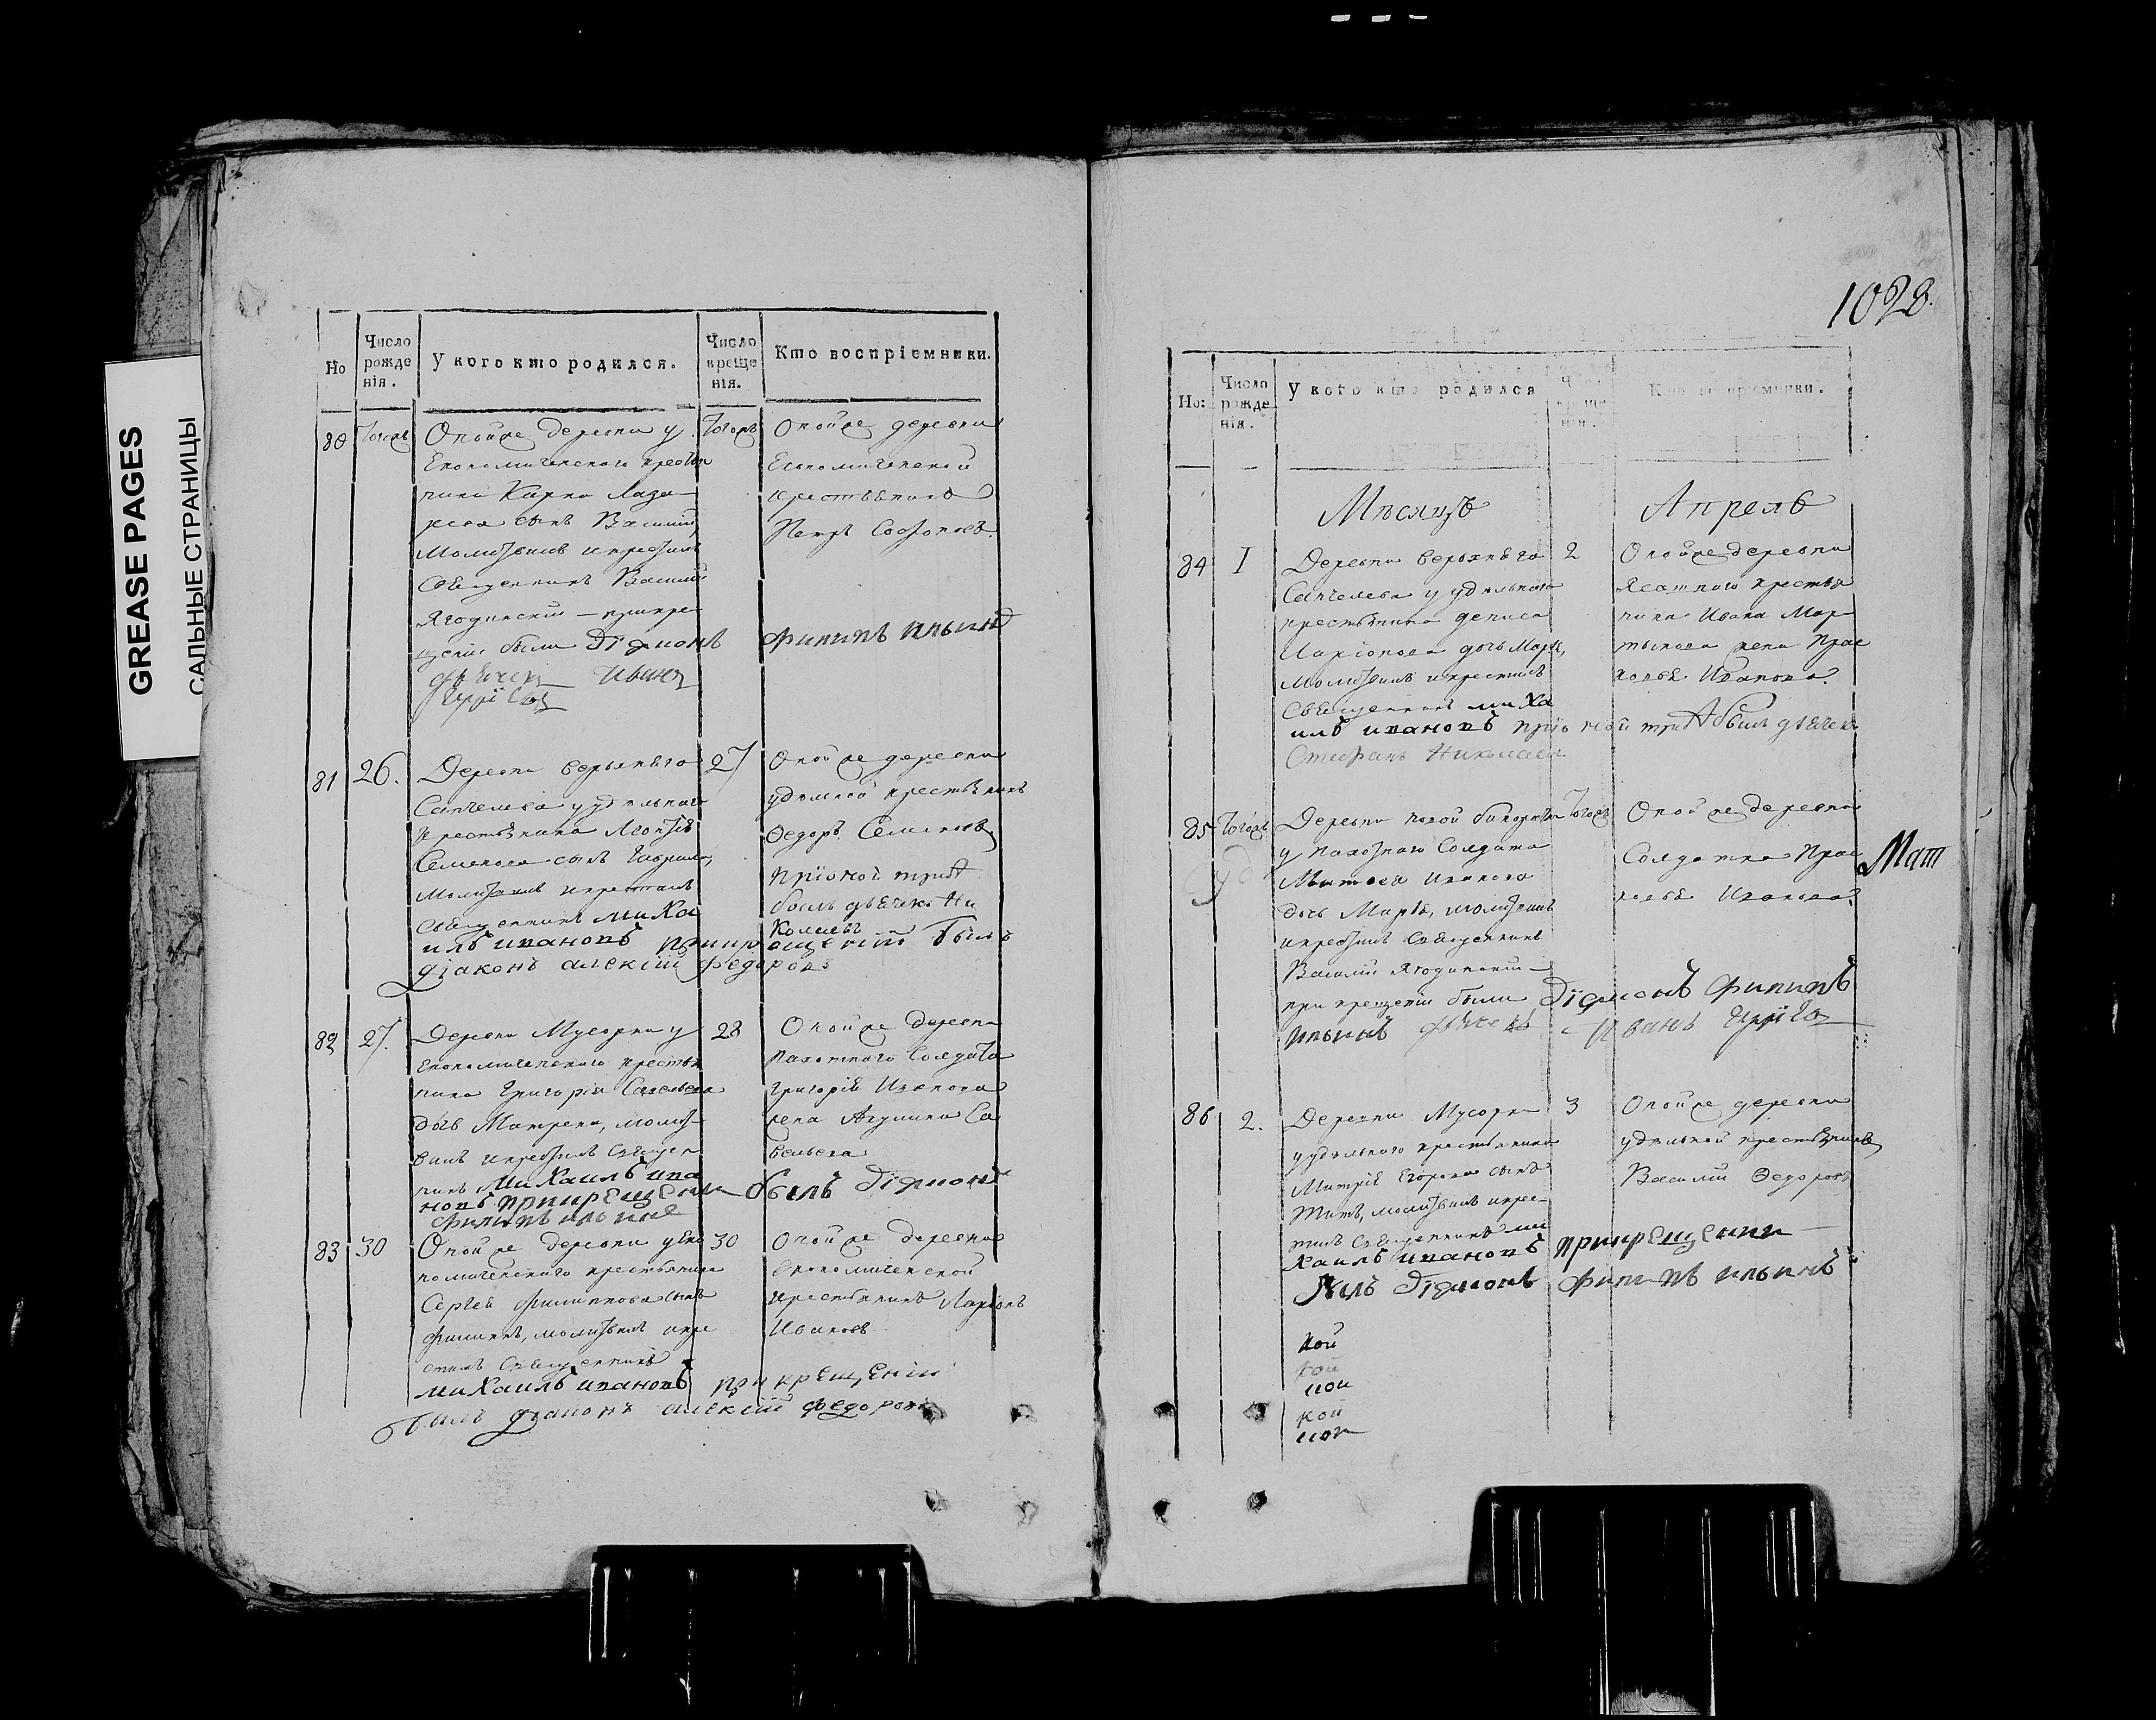 GREASE PAGES
САЛЬНЫЕ СТРАНИЦЫ
Но
Число рожде нія.
У кого кто родился.
Число креще нія.
Кто воспріемники.
80
Тогожъ
Оной же деревни у
Економическаго крестья
нина Карпа Лаза-
рева сынъ Василій
Молитвилъ и крестилъ
Священникъ Василій
Ягодинскій — при кре-
щеніи были Діяконъ Филипъ Ильинъ
дьячекъ Иванъ
Тогожъ
Оной же деревни
Економической
крестьянинъ
Петръ Софоновъ.
81
26.
Деревни верхняго
Санчелеева у удѣльнаго
крестьянина Леонтія
Семенова сынъ Гаврила,
Молитвилъ и крестилъ
священникъ Миха
илъ Ивановъ при крещеніи былъ
діаконъ алексій федоровъ
27
Оной же деревни
удѣльной крестьянинъ
Федоръ Семеновъ
при оной трибѣ
былъ дьячекъ Ни
колаевъ
82
27.
Деревни Мусорки у
економическаго крестья
нина Григорія Савельева
дочь Матрена, молит-
вилъ и крестилъ Священ
никъ Михаилъ Ива
новъ при крещеніи былъ Діяконъ
Филипъ Ильинъ
28
Оной же деревни
пахотнаго Солдата
Григорія Иванова
жена Акулина Са
вельева
83
30
Оной же деревни у Еко
номическаго крестьянина
Сергей Филиппова сынъ
Филипъ, молитвилъ и кре
стилъ Священникъ
Михаилъ Ивановъ при крещеніи
былъ діаконъ алексій федоровъ
30
Оной же деревни
Економической
крестьянинъ Ларіонъ
Ивановъ
1028.
Но:
Число рожде нія.
У кого кто родился
Мѣсяцъ Апрель
84
1
Деревни верхняго
Санчелеева у удѣльнаго
крестьянина Дениса
Ларіонова дочь Марья,
молитвилъ и крестилъ
Священникъ Миха
илъ Ивановъ при оной трибѣ былъ дьячекъ
Стефанъ Николаевъ
2
Оной же деревни
Ясашнаго крестья
нина Ивана Мар-
тынова жена Прас
ковья Иванова.
85
Тогожъ
Деревни
у пахотнаго Солдата
Матвея Иванова
дочь Марья, молитвилъ
и крестилъ Священникъ
Василій Ягодинскій —
при крещеніи были Діяконъ Филипъ
Ильинъ дьячекъ Иванъ
Тогожъ
Оной же деревни
Солдатка Прас
ковья Иванова.
Мат
86
2.
Деревни Мусорки
у удѣльнаго крестьянина
Митрія Егорова сынъ
Титъ, молитвилъ и крес-
тилъ Священникъ Ми
хаилъ Ивановъ при крещении
былъ Діяконъ Филипъ Ильинъ
3
Оной же деревни
удѣльной крестьянинъ
Василій Федоровъ
кой
кой
кой
кой